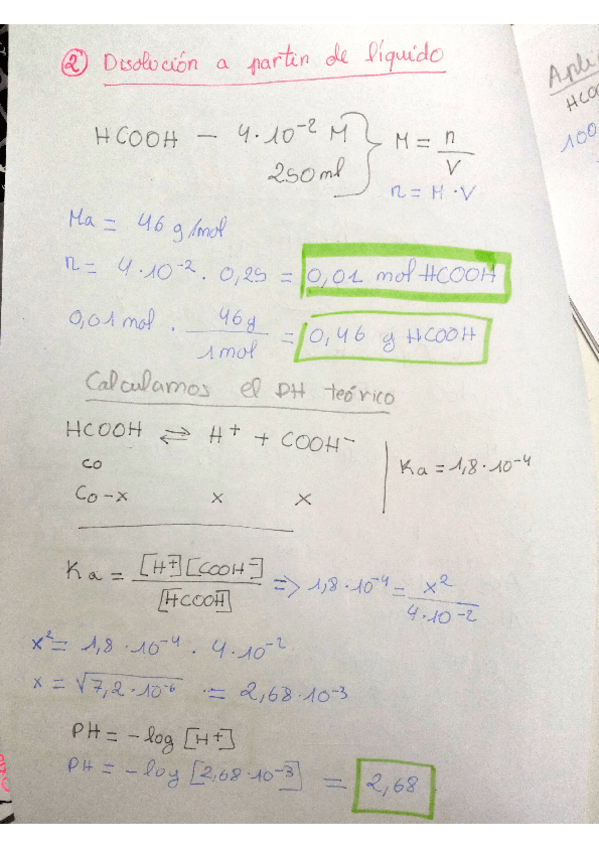 ② Disolución a partir de líquido
HCOOH — 4·10⁻² M
250 ml
M = n/V
n = M·V
Ma = 46 g/mol
n = 4·10⁻² · 0,25 = 0,01 mol HCOOH
0,01 mol · 46 g / 1 mol = 0,46 g HCOOH
Calculamos el PH teórico
HCOOH ⇌ H⁺ + COOH⁻
Ka = 1,8·10⁻⁴
co
Co-x x x
Ka = [H⁺][COOH⁻] / [HCOOH] => 1,8·10⁻⁴ = x² / 4·10⁻²
x² = 1,8·10⁻⁴ · 4·10⁻²
x = √7,2·10⁻⁶ = 2,68·10⁻³
PH = -log [H⁺]
PH = -log [2,68·10⁻³] = 2,68
HCO
100